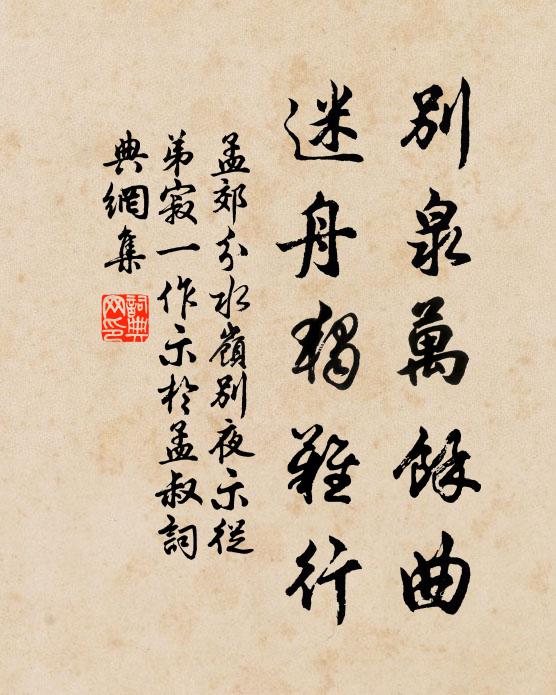 別泉萬餘曲
迷舟獨難行
孟郊分水嶺別夜示從
弟寂一作示於孟叔詞
典網集
詞典
网印